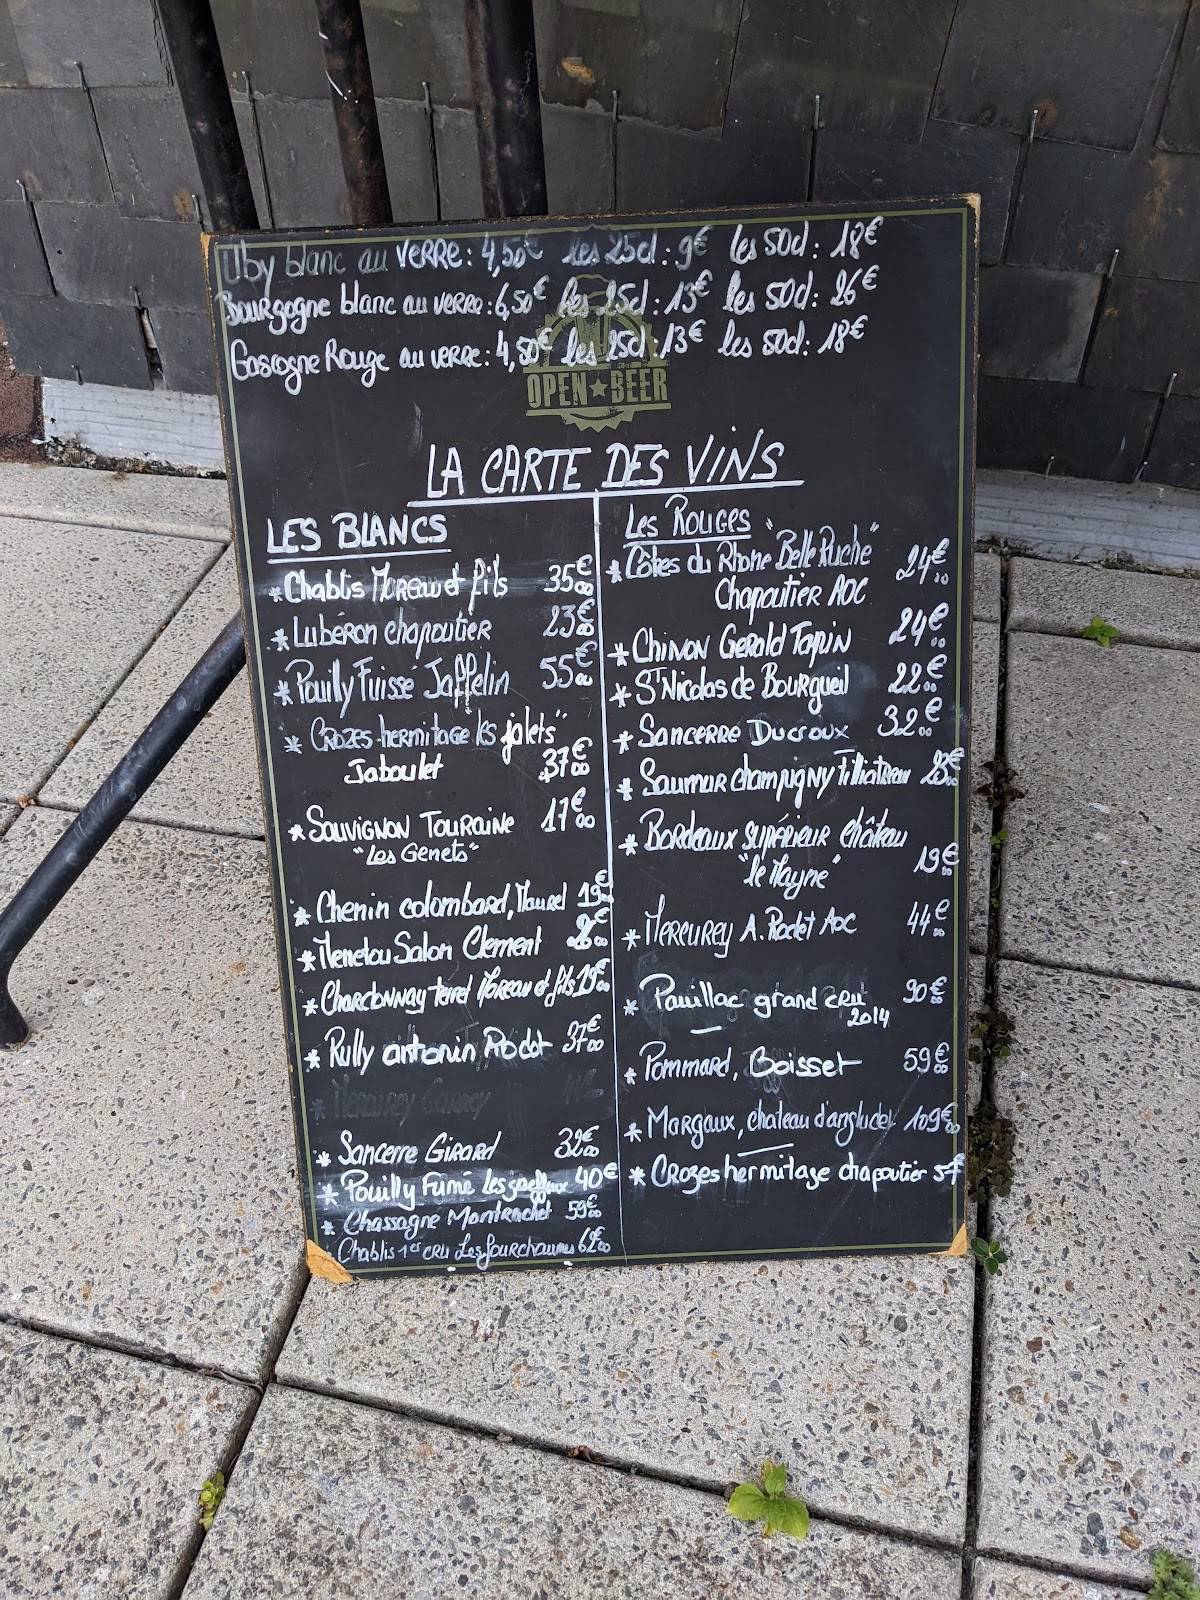 Uby blanc au verre : 4,50€ les 25cl : 9€ les 50cl : 18€
Bourgogne blanc au verre : 6,50€ les 25cl : 13€ les 50cl : 26€
Gascogne Rouge au verre : 4,50€ les 25cl : 13€ les 50cl : 18€
OPEN★BEER
LA CARTE DES VINS
LES BLANCS
* Chablis Moreau et fils 35€00
* Lubéron chapoutier 23€00
* Pouilly Fuissé Jaffelin 55€00
* Crozes-hermitage les jalets"
Jaboulet 37€00
* Sauvignon Touraine 17€00
"Les Genets"
* Chenin colombard, Maurel 19€
* Menetou Salon Clement 26€00
* Chardonnay terret Moreau et fils 19€00
* Rully antonin Rodet 37€00
* Mercurey
* Sancerre Girard 32€00
* Pouilly Fumé Les 40€
* Chassagne Montrachet 59€00
Chablis 1er cru Les fourchaumes 62€00
Les Rouges
* Côtes du Rhone "Belle Ruche" 24€00
Chapoutier AOC
* Chinon Gerald Tapin 24€00
* St Nicolas de Bourgueil 22€00
* Sancerre Ducroux 32€00
* Saumur champigny Filliatreau 25€00
* Bordeaux supérieur château
"le Mayne" 19€00
* Mercurey A. Rodet Aoc 44€00
* Pauillac grand cru 90€00
2014
* Pommard, Boisset 59€00
* Margaux, chateau d'angludet 109€00
* Crozes hermitage chapoutier 57€